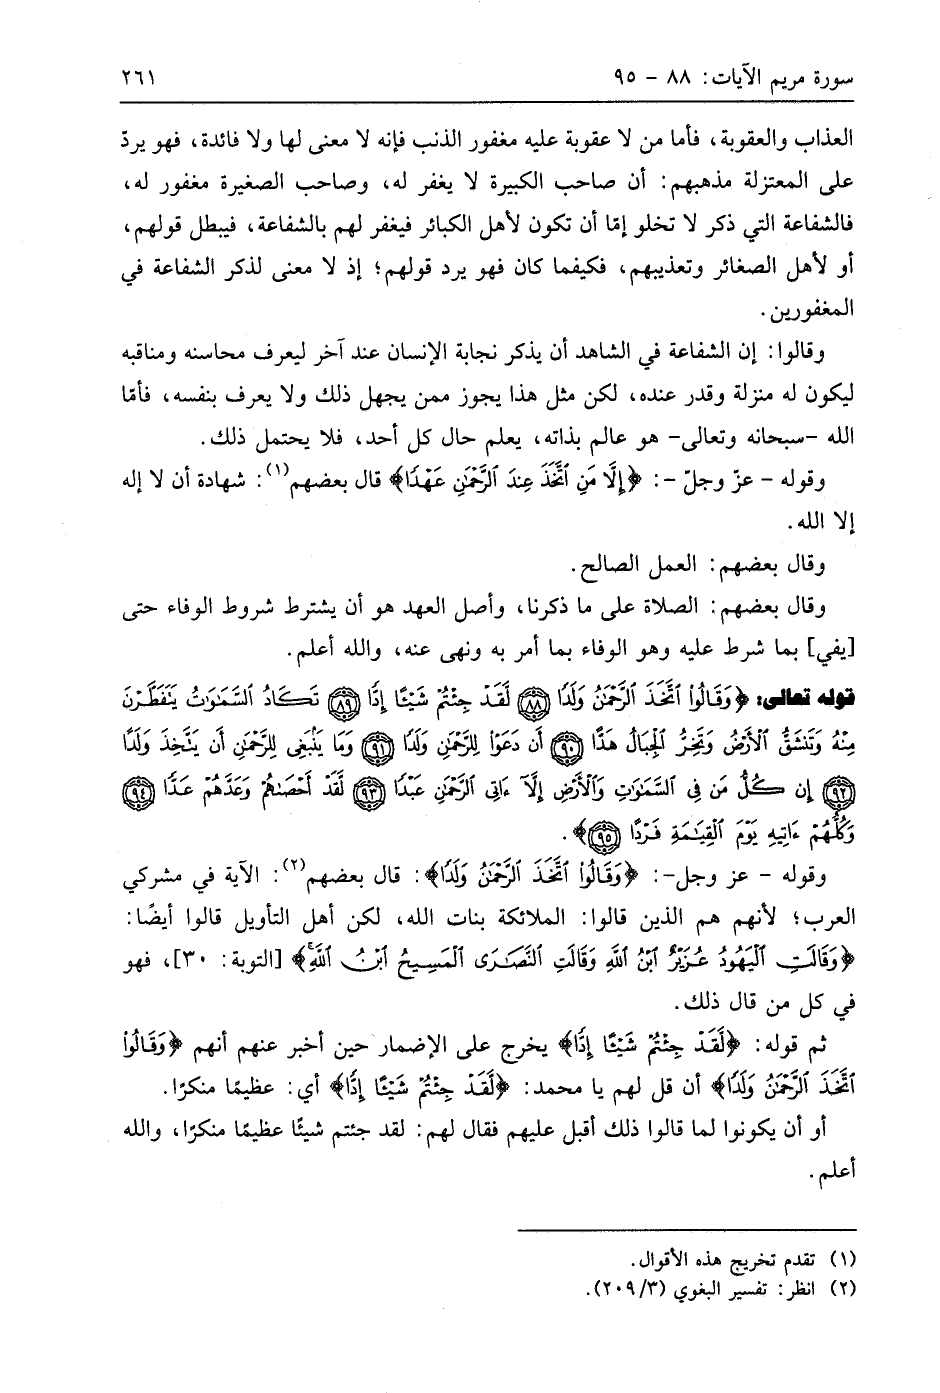 سورة مريم الآيات: ٨٨ - ٩٥ ٢٦١
العذاب والعقوبة، فأما من لا عقوبة عليه مغفور الذنب فإنه لا معنى لها ولا فائدة، فهو يردّ
على المعتزلة مذهبهم: أن صاحب الكبيرة لا يغفر له، وصاحب الصغيرة مغفور له،
فالشفاعة التي ذكر لا تخلو إمّا أن تكون لأهل الكبائر فيغفر لهم بالشفاعة، فيبطل قولهم،
أو لأهل الصغائر وتعذيبهم، فكيفما كان فهو يرد قولهم؛ إذ لا معنى لذكر الشفاعة في
المغفورين.
وقالوا: إن الشفاعة في الشاهد أن يذكر نجابة الإنسان عند آخر ليعرف محاسنه ومناقبه
ليكون له منزلة وقدر عنده، لكن مثل هذا يجوز ممن يجهل ذلك ولا يعرف بنفسه، فأمّا
الله -سبحانه وتعالى- هو عالم بذاته، يعلم حال كل أحد، فلا يحتمل ذلك.
وقوله - عزّ وجلّ -: ﴿إِلَّا مَنِ ٱتَّخَذَ عِندَ ٱلرَّحْمَٰنِ عَهْدًا﴾ قال بعضهم(١): شهادة أن لا إله
إلا الله.
وقال بعضهم: العمل الصالح.
وقال بعضهم: الصلاة على ما ذكرنا، وأصل العهد هو أن يشترط شروط الوفاء حتى
[يفي] بما شرط عليه وهو الوفاء بما أمر به ونهى عنه، والله أعلم.
قوله تعالى: ﴿وَقَالُوا۟ ٱتَّخَذَ ٱلرَّحْمَٰنُ وَلَدًا ٨٨ لَّقَدْ جِئْتُمْ شَيْـًٔا إِدًّا ٨٩ تَكَادُ ٱلسَّمَٰوَٰتُ يَتَفَطَّرْنَ
مِنْهُ وَتَنشَقُّ ٱلْأَرْضُ وَتَخِرُّ ٱلْجِبَالُ هَدًّا ٩٠ أَن دَعَوْا۟ لِلرَّحْمَٰنِ وَلَدًا ٩١ وَمَا يَنۢبَغِى لِلرَّحْمَٰنِ أَن يَتَّخِذَ وَلَدًا
٩٢ إِن كُلُّ مَن فِى ٱلسَّمَٰوَٰتِ وَٱلْأَرْضِ إِلَّآ ءَاتِى ٱلرَّحْمَٰنِ عَبْدًا ٩٣ لَّقَدْ أَحْصَىٰهُمْ وَعَدَّهُمْ عَدًّا ٩٤
وَكُلُّهُمْ ءَاتِيهِ يَوْمَ ٱلْقِيَٰمَةِ فَرْدًا ٩٥﴾.
وقوله - عز وجل-: ﴿وَقَالُوا۟ ٱتَّخَذَ ٱلرَّحْمَٰنُ وَلَدًا﴾: قال بعضهم(٢): الآية في مشركي
العرب؛ لأنهم هم الذين قالوا: الملائكة بنات الله، لكن أهل التأويل قالوا أيضًا:
﴿وَقَالَتِ ٱلْيَهُودُ عُزَيْرٌ ٱبْنُ ٱللَّهِ وَقَالَتِ ٱلنَّصَٰرَى ٱلْمَسِيحُ ٱبْنُ ٱللَّهِ﴾ [التوبة: ٣٠]، فهو
في كل من قال ذلك.
ثم قوله: ﴿لَّقَدْ جِئْتُمْ شَيْـًٔا إِدًّا﴾ يخرج على الإضمار حين أخبر عنهم أنهم ﴿وَقَالُوا۟
ٱتَّخَذَ ٱلرَّحْمَٰنُ وَلَدًا﴾ أن قل لهم يا محمد: ﴿لَّقَدْ جِئْتُمْ شَيْـًٔا إِدًّا﴾ أي: عظيمًا منكرًا.
أو أن يكونوا لما قالوا ذلك أقبل عليهم فقال لهم: لقد جئتم شيئًا عظيمًا منكرًا، والله
أعلم.
(١) تقدم تخريج هذه الأقوال.
(٢) انظر: تفسير البغوي (٢٠٩/٣).